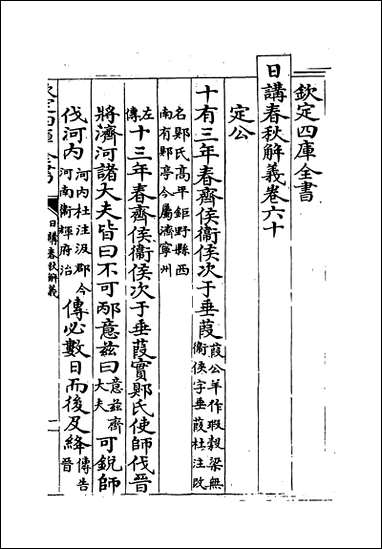 欽定四庫全書
日講春秋解義卷六十
定公
十有三年春齊侯衛侯次于垂葭葭公羊作瑕穀梁無衛侯字垂葭杜注改
名郹氏高平鉅野縣西南有郹亭今屬濟寧州
左傳十三年春齊侯衛侯次于垂葭實郹氏使師伐晉
將濟河諸大夫皆曰不可邴意兹曰意兹齊大夫可銳師
伐河内河内杜注汲郡今河南衛輝府治傳必數日而後及絳傳告晉
日講春秋解義